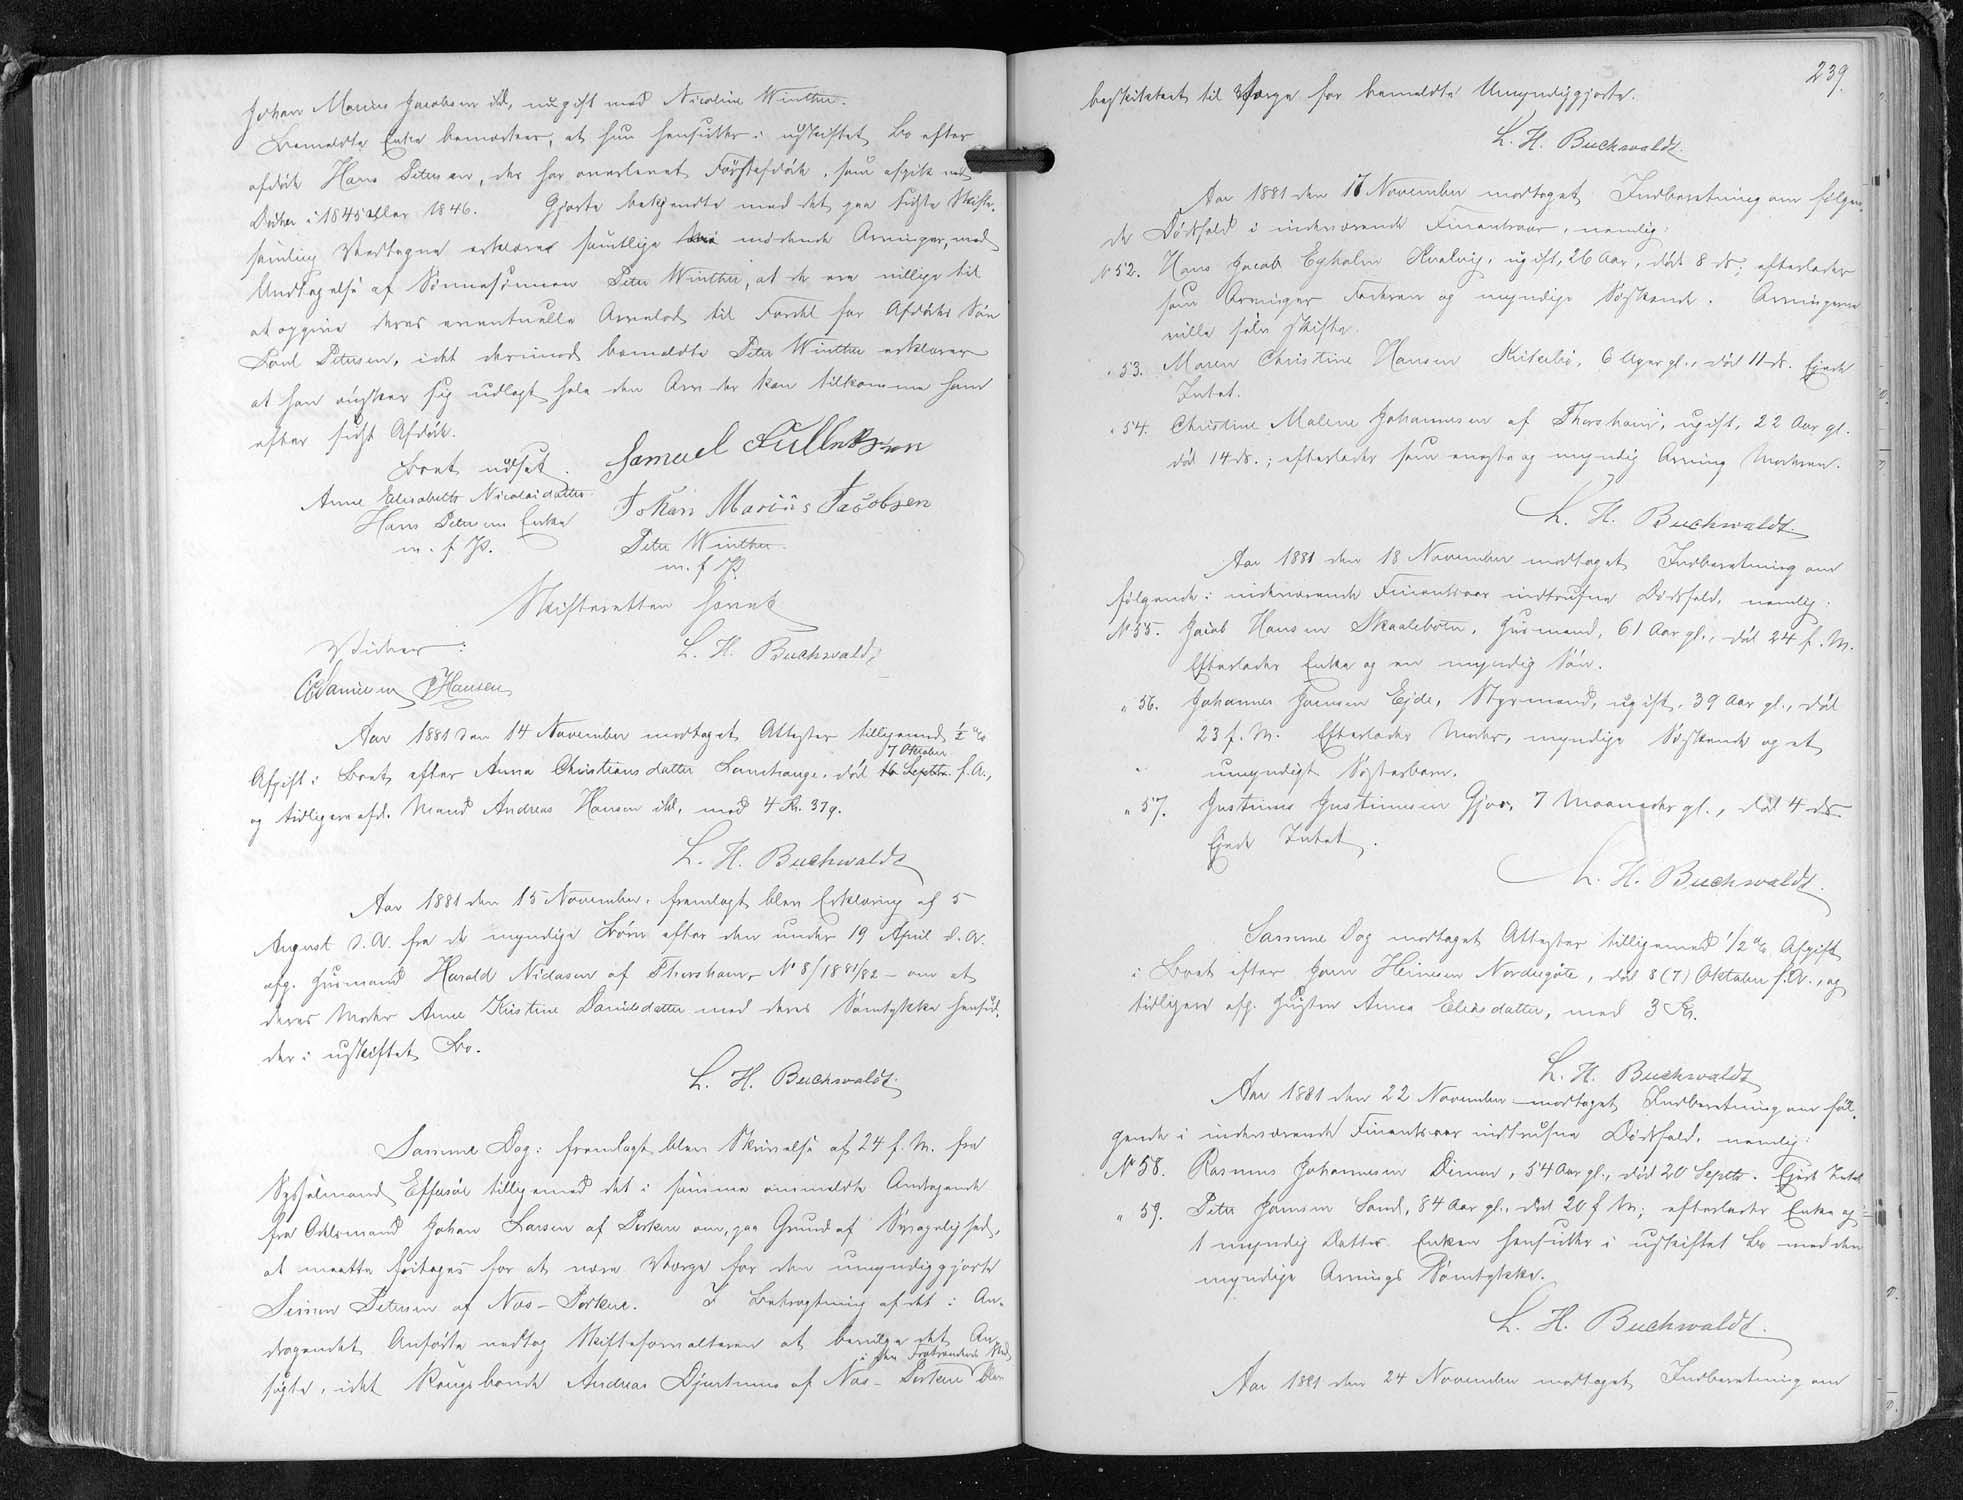 Johan Marius Jacobsen ibd, nu gift med Nicoline Winther.
Bemeldte Enke bemærker, at hun hensidder i uskiftet Bo efter
afdøde Hans Petersen, der har overlevet Førstafdøde, som afgik ved
Døden i 1845 eller 1846. Gjorte bekjendte med det paa sidste Skifte-
samling Vedtagne erklærer samtlige mødende Arvinger, med
Undtagelse af Sønnesønnen Peter Winther, at de ere villige til
at opgive deres eventuelle Arvelod til Fordel for Afdødes Søn
Poul Petersen, idet derimod bemeldte Peter Winther erklærer
at han ønsker sig udlagt hele den Arv der kan tilkomme ham
efter sidst Afdøde.
Boet udsat.
Samuel
Anne Elisabeth Nicolaidatter
Hans Petersens Enke
m. f. P.
Johan Marius Jacobsen
Peter Winther.
m. f. P.
Skifteretten hævet
L. H. Buchwaldt
Vidner:
Danielsen Hansen
Aar 1881 den 14 November modtaget Attester tilligemed ½ %
7 Oktober
Afgift i Boet efter Anna Christiansdatter død 16 Septbr. f. A.,
og tidligere afd. Mand Andreas Hansen ibd, med 4 Kr. 37 ø.
L. H. Buchwaldt
Aar 1881 den 15 November, fremlagt blev Erklæring af 5
August d. A. fra de myndige Børn efter den under 19 April d. A.
afg. Husmand Harald Nidasen af Thorshavn, No 8/1881/82 – om at
deres Moder Anne Kristine Danielsdatter med deres Samtykke hensid-
der i uskiftet Bo.
L. H. Buchwaldt.
Samme Dag: fremlagt blev Skrivelse af 24 f. M. fra
Sysselmand Effersøe tilligemed det i samme ommeldte Andragende
fra Odelsmand Johan Larsen af Porkere om, paa Grund af Svagelighed,
at maatte fritages for at være Værge for den umyndiggjorte
Petersen af Næs – Porkere. I Betragtning af det i An-
dragendet Anførte vedtog Skifteforvalteren at bevilge det An-
i den Fratrædendes Sted
søgte, idet Kongsbonde Andreas Djurhuus af Næs – Porkere blev
239.
beskikket til Værge for bemeldte Umyndiggjorte.
L. H. Buchwaldt.
Aar 1881 den 17 November modtaget Indberetning om følgen-
de Dødsfald i indeværende Finantsaar, nemlig:
No 52. Hans Jacob Egholm Kvalvig, ugift, 26 Aar, død 8 ds; efterlader
som Arvinger Faderen og myndige Søskende. Arvingerne
ville selv skifte.
" 53. Maren Christine Hansen 6 Uger gl., død 11 ds. Ejede
Intet.
" 54. Christine Malene Johannesen af Thorshavn, ugift, 22 Aar gl.
død 14 ds.; efterlader som eneste og myndig Arving Moderen.
L. H. Buchwaldt.
Aar 1881 den 18 November modtaget Indberetning om
følgende i indeværende Finantsaar indtrufne Dødsfald, nemlig:
No 55. Jacob Hansen Skaalebotn, Husmand, 61 Aar gl., død 24 f. M.
Efterlader Enke og en myndig Søn.
" 56. Johannes Joensen Ejde, Styrmand, ugift, 39 Aar gl., død
23 f. M. Efterlader Moder, myndige Søskende og et
umyndigt Søsterbarn.
" 57. Justinus Justinussen Gjov, 7 Maaneder gl., død 4 ds.
Ejede Intet.
L. H. Buchwaldt.
Samme Dag modtaget Attester tilligemed 1/2 % Afgift
i Boet efter Joen Heinesen Nordregøte, død 8 (7) Oktober f. A., og
tidligere afg. Hustru Anna Eliasdatter, med 3 Kr.
L. H. Buchwaldt
Aar 1881 den 22 November modtaget Indberetning om føl-
gende i indeværende Finantsaar indtrufne Dødsfald, nemlig:
No 58. Rasmus Johannesen Dimon, 54 Aar gl., død 20 Septbr. Ejede Intet
" 59. Peter Joensen Sand, 84 Aar gl., død 20 f M; efterlader Enke og
1 myndig Datter. Enken hensidder i uskiftet Bo med den
myndige Arvings Samtykke.
L. H. Buchwaldt.
Aar 1881 den 24 November modtaget Indberetning om